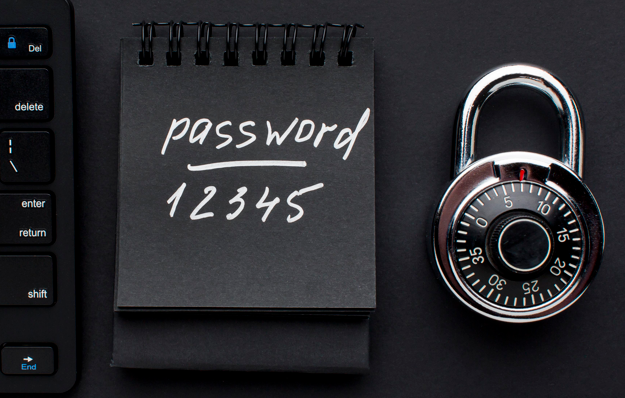 Del
delete
¦
\
enter
return
shift
→
End
password
12345
0 5 10 15 20 25 30 35